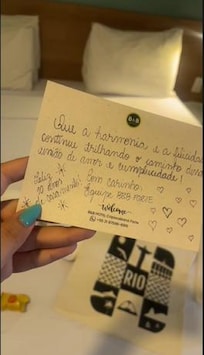 B&B
Que a harmonia e a felicidade
continue trilhando o caminho dessa
união de amor e cumplicidade!
Feliz
10 anos
de casamento!
Com carinho,
Equipe B&B
Welcome
RIO